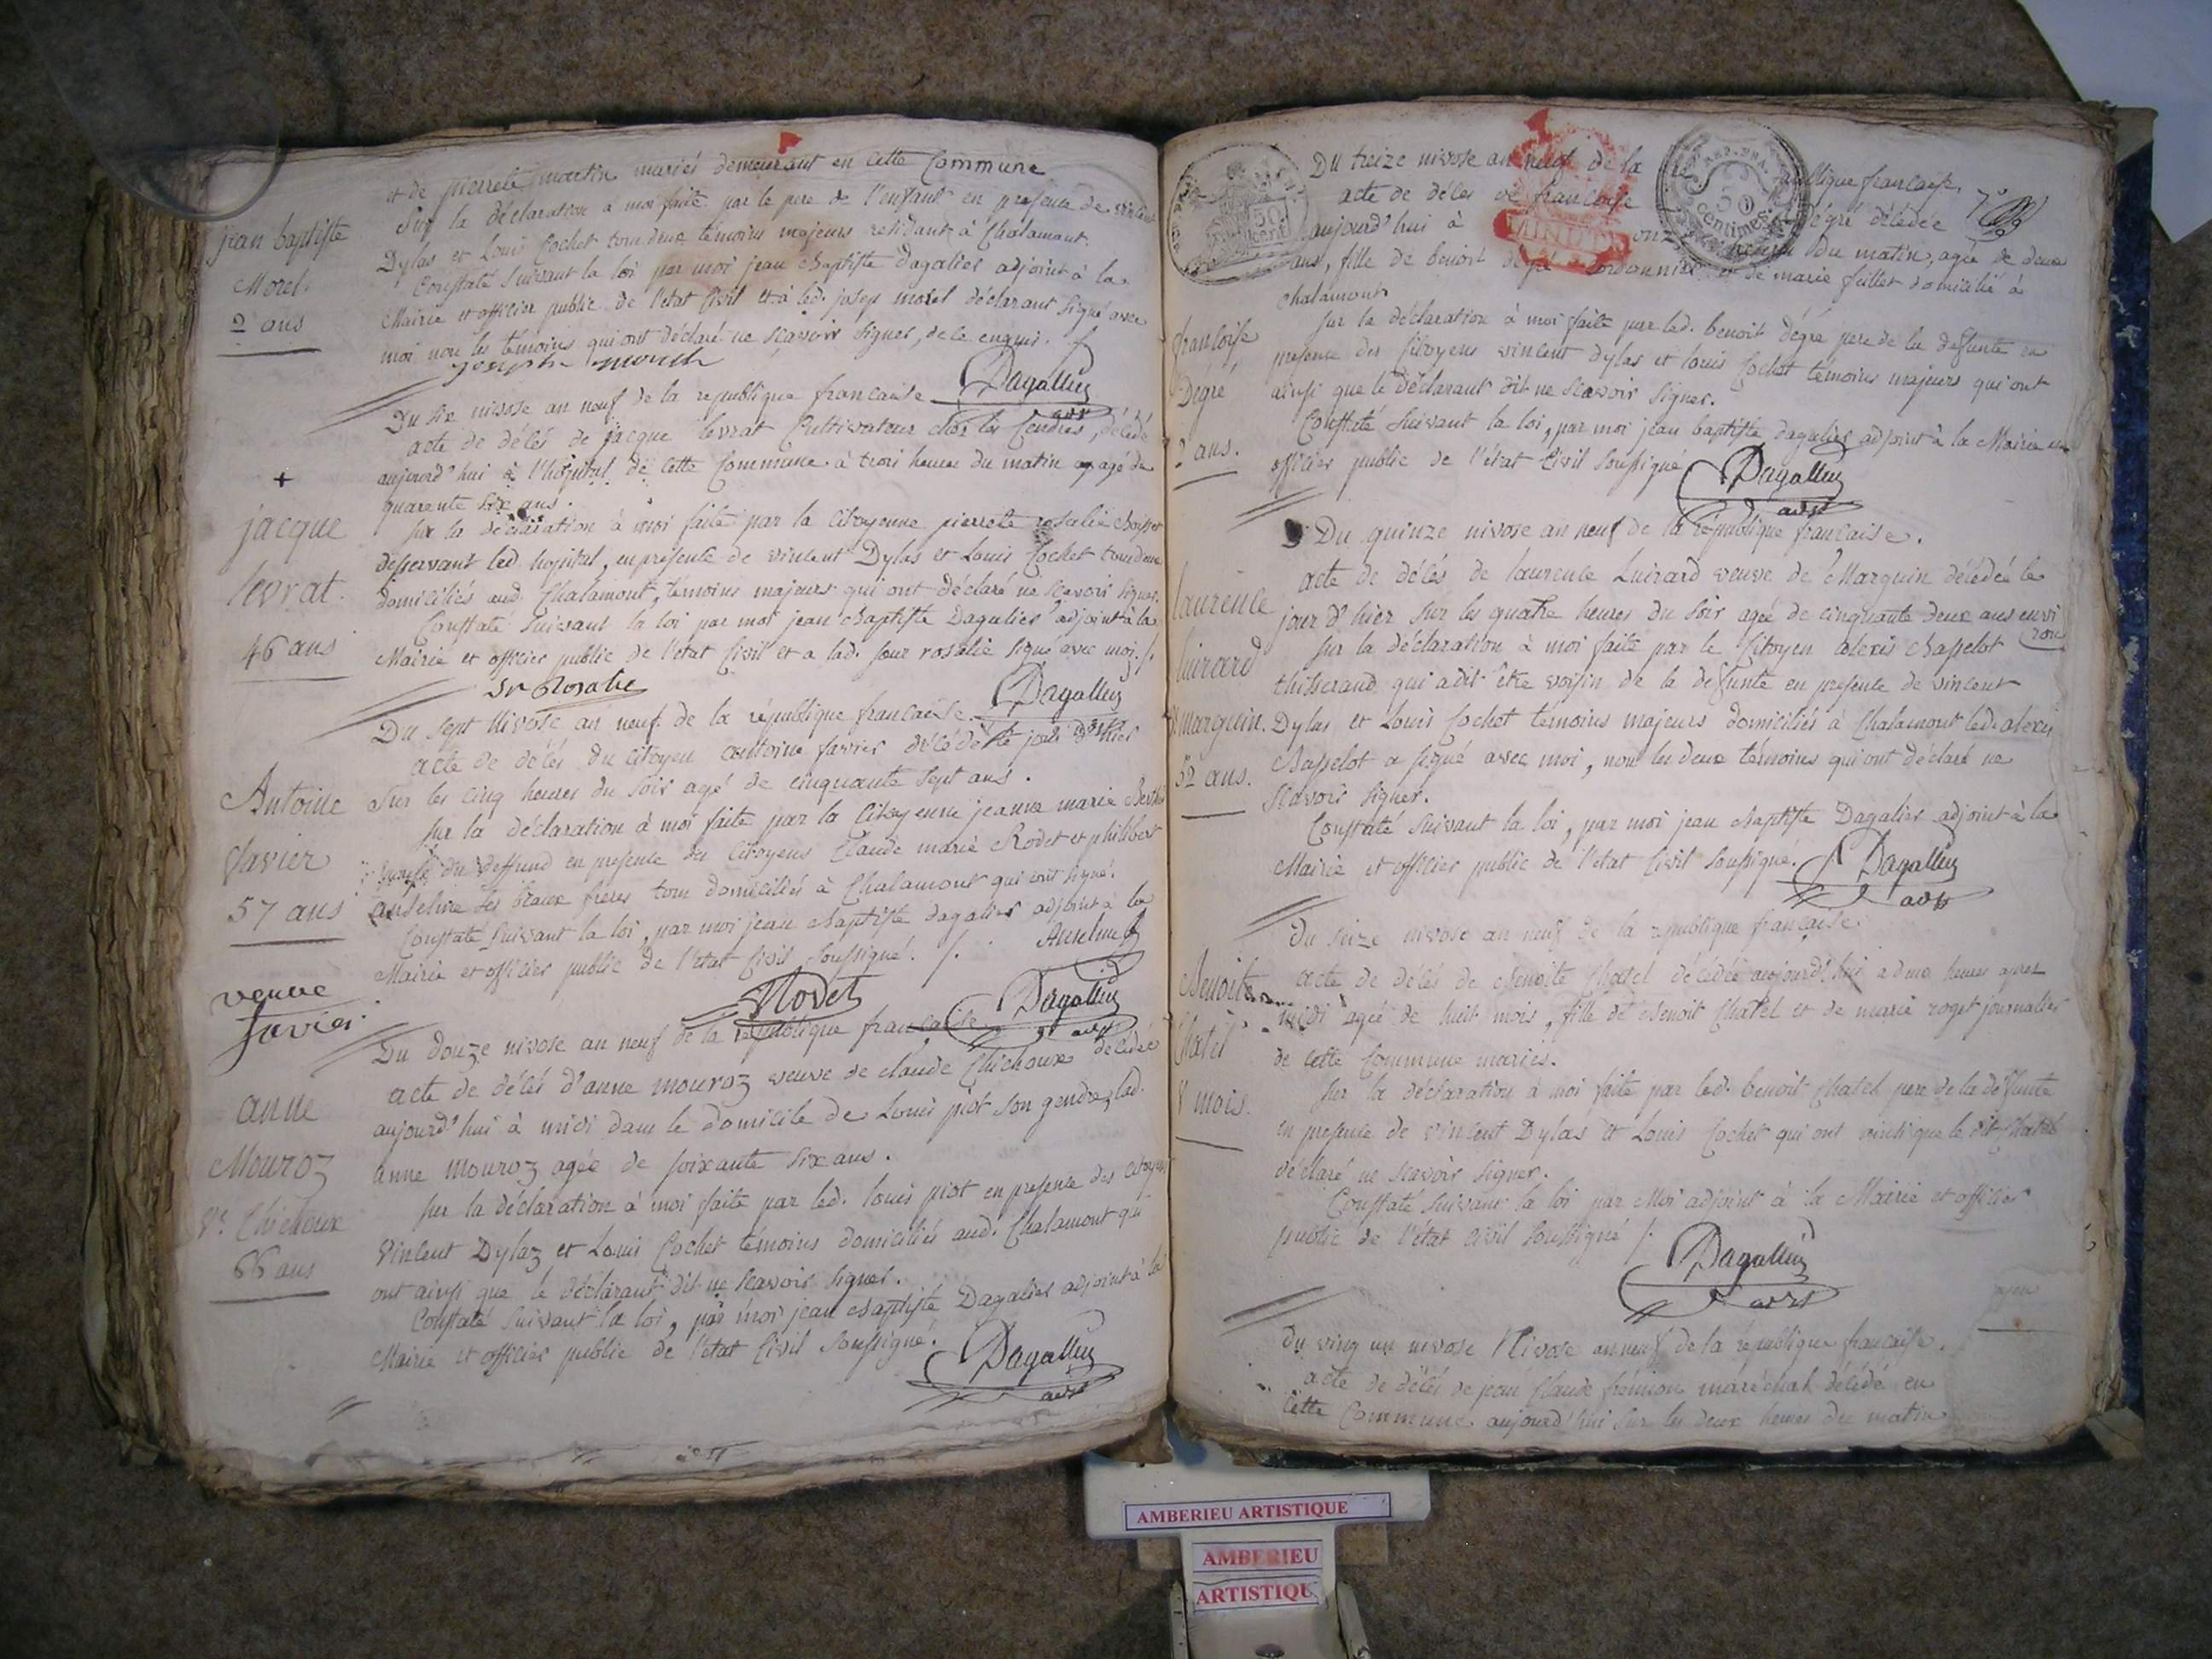 et de pierrete martin mariés demeurant en cette Commune
Sur la déclaration a moi faite par le pere de l'enfant en presence de vincent
Dylas et Louis Cochet tous deux témoins majeurs residant à Chalamont.
Constaté suivant la loi par moi jean Baptiste Dagalier adjoint à la
Mairie et officier public de l'etat Civil et à led. josep morel déclarant signé avec
moi non les témoins qui ont déclaré ne sçavoir signer, de ce enquis.
jean baptiste
Morel.
2 ans
joseph morel
Dagallier
adjt
Du six nivose an neuf de la republique francaise
acte de décés de jacque levrat Cultivateur chez les Cendres, décédé
aujourd'hui à l'hopital de cette Commune à trois heures du matin agé de
quarente six ans.
sur la déclaration à moi faite par la Citoyenne pierrete rosalie
desservant led. hopital, en présence de vincent Dylas et Louis Cochet tous deux
domiciliés aud. Chalamont, témoins majeurs qui ont déclaré ne sçavoir signer.
Constaté suivant la loi par moi jean Baptiste Dagalier adjoint à la
Mairie et officier public de l'etat Civil et a lad. sour rosalie signé avec moi.
+
jacque
levrat.
46 ans
Sr Rosalie
Dagallier
adjt
Du sept Nivose an neuf de la république francaise
acte de décés du citoyen antoine favier décédé le jour d'hier
Sur les cinq heures du soir agé de cinquante sept ans.
sur la déclaration à moi faite par la Citoyenne jeanne marie
du deffund en presence des Citoyens Claude marie Rodet et philibert
anselme ses beaux freres tous domiciliés à Chalamont qui ont signé.
Constaté suivant la loi, par moi jean Baptiste dagalier adjoint a la
Mairie et officier public de l'etat Civil soussigné.
Antoine
favier
57 ans
veuve
favier
Anselme
Rodet
Dagallier
adjt
Du douze nivose an neuf de la republique francaise
acte de décés d'anne mouroz veuve de claude Chichoux décédée
aujourd'hui à midi dans le domicile de Louis piot son gendre, lad.
anne mouroz agée de soixante six ans.
sur la déclaration à moi faite par led. louis piot en presence des citoyens
Vincent Dylaz et Louis Cochet témoins domiciliés aud. Chalamont qui
ont ainsi que le déclarant dit ne sçavoir signer.
Constaté suivant la loi, par moi jean Baptiste Dagalier adjoint à la
Mairie et officier public de l'etat Civil soussigné.
anne
Mouroz
Ve. Chichoux
66 ans
Dagallier
adjt
Du treize nivose an neuf de la république francaise,
acte de décés de francoise dégré décédée
aujourd'hui à onze heures du matin, agée de deux
ans, fille de benoit dégré cordonnier et de marie feillet domicilié à
chalamont
sur la déclaration à moi faite par led. benoit dégré pere de la defunte en
presence des Citoyens vincent dylas et louis Cochet témoins majeurs qui ont
ainsi que le déclarant dit ne sçavoir signer.
Constaté suivant la loi, par moi jean baptiste dagalier adjoint à la Mairie et
officier public de l'état Civil soussigné
francoise
Dégré
2 ans.
50
centimes.
Dagallier
adjt
Du quinze nivose an neuf de la république francaise.
acte de décés de laurence Luirard veuve de Marguin décédée le
jour d'hier sur les quatre heures du soir agée de cinquante deux ans environ
sur la déclaration à moi faite par le Citoyen alexis Chapelot
thisserand qui a dit être voisin de la defunte en presence de vincent
Dylas et Louis Cochet témoins majeurs domiciliés à Chalamont led. alexis
Chapelot a signé avec moi, non les deux témoins qui ont déclaré ne
sçavoir signer.
Constaté suivant la loi, par moi jean Baptiste Dagalier adjoint à la
Mairie et officier public de l'etat Civil soussigné.
laurence
luirard
Ve. marguin.
52 ans.
Dagallier
adjt
Du seize nivose an neuf de la république francaise.
acte de décés de Benoite Chatel décédée aujourd'hui a deux heures apres
midi agée de huit mois, fille de Benoit Chatel et de marie roget journalier
de cette Commune mariés.
sur la déclaration à moi faite par led. benoit Chatel pere de la defunte
en presence de vincent Dylas et Louis Cochet qui ont ainsi que le dit Chatel
déclaré ne sçavoir signer.
Constaté suivant la loi par Moi adjoint à la Mairie et officier
public de l'état Civil soussigné
Benoite
Chatel
8 mois.
Dagallier
adjt
du vingt un nivose Nivose an neuf de la république francaise.
acte de décés de jean Claude frémion maréchal décédé en
cette Commune aujourd'hui sur les deux heures du matin
AMBERIEU ARTISTIQUE
AMBERIEU
ARTISTIQU